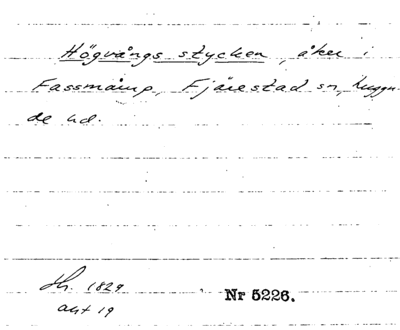 Högvångs stycken, åker i
Fassmårup, Fjärestad sn, Luggu-
de hd.
Sk. 1829
akt 19
Nr 5226.